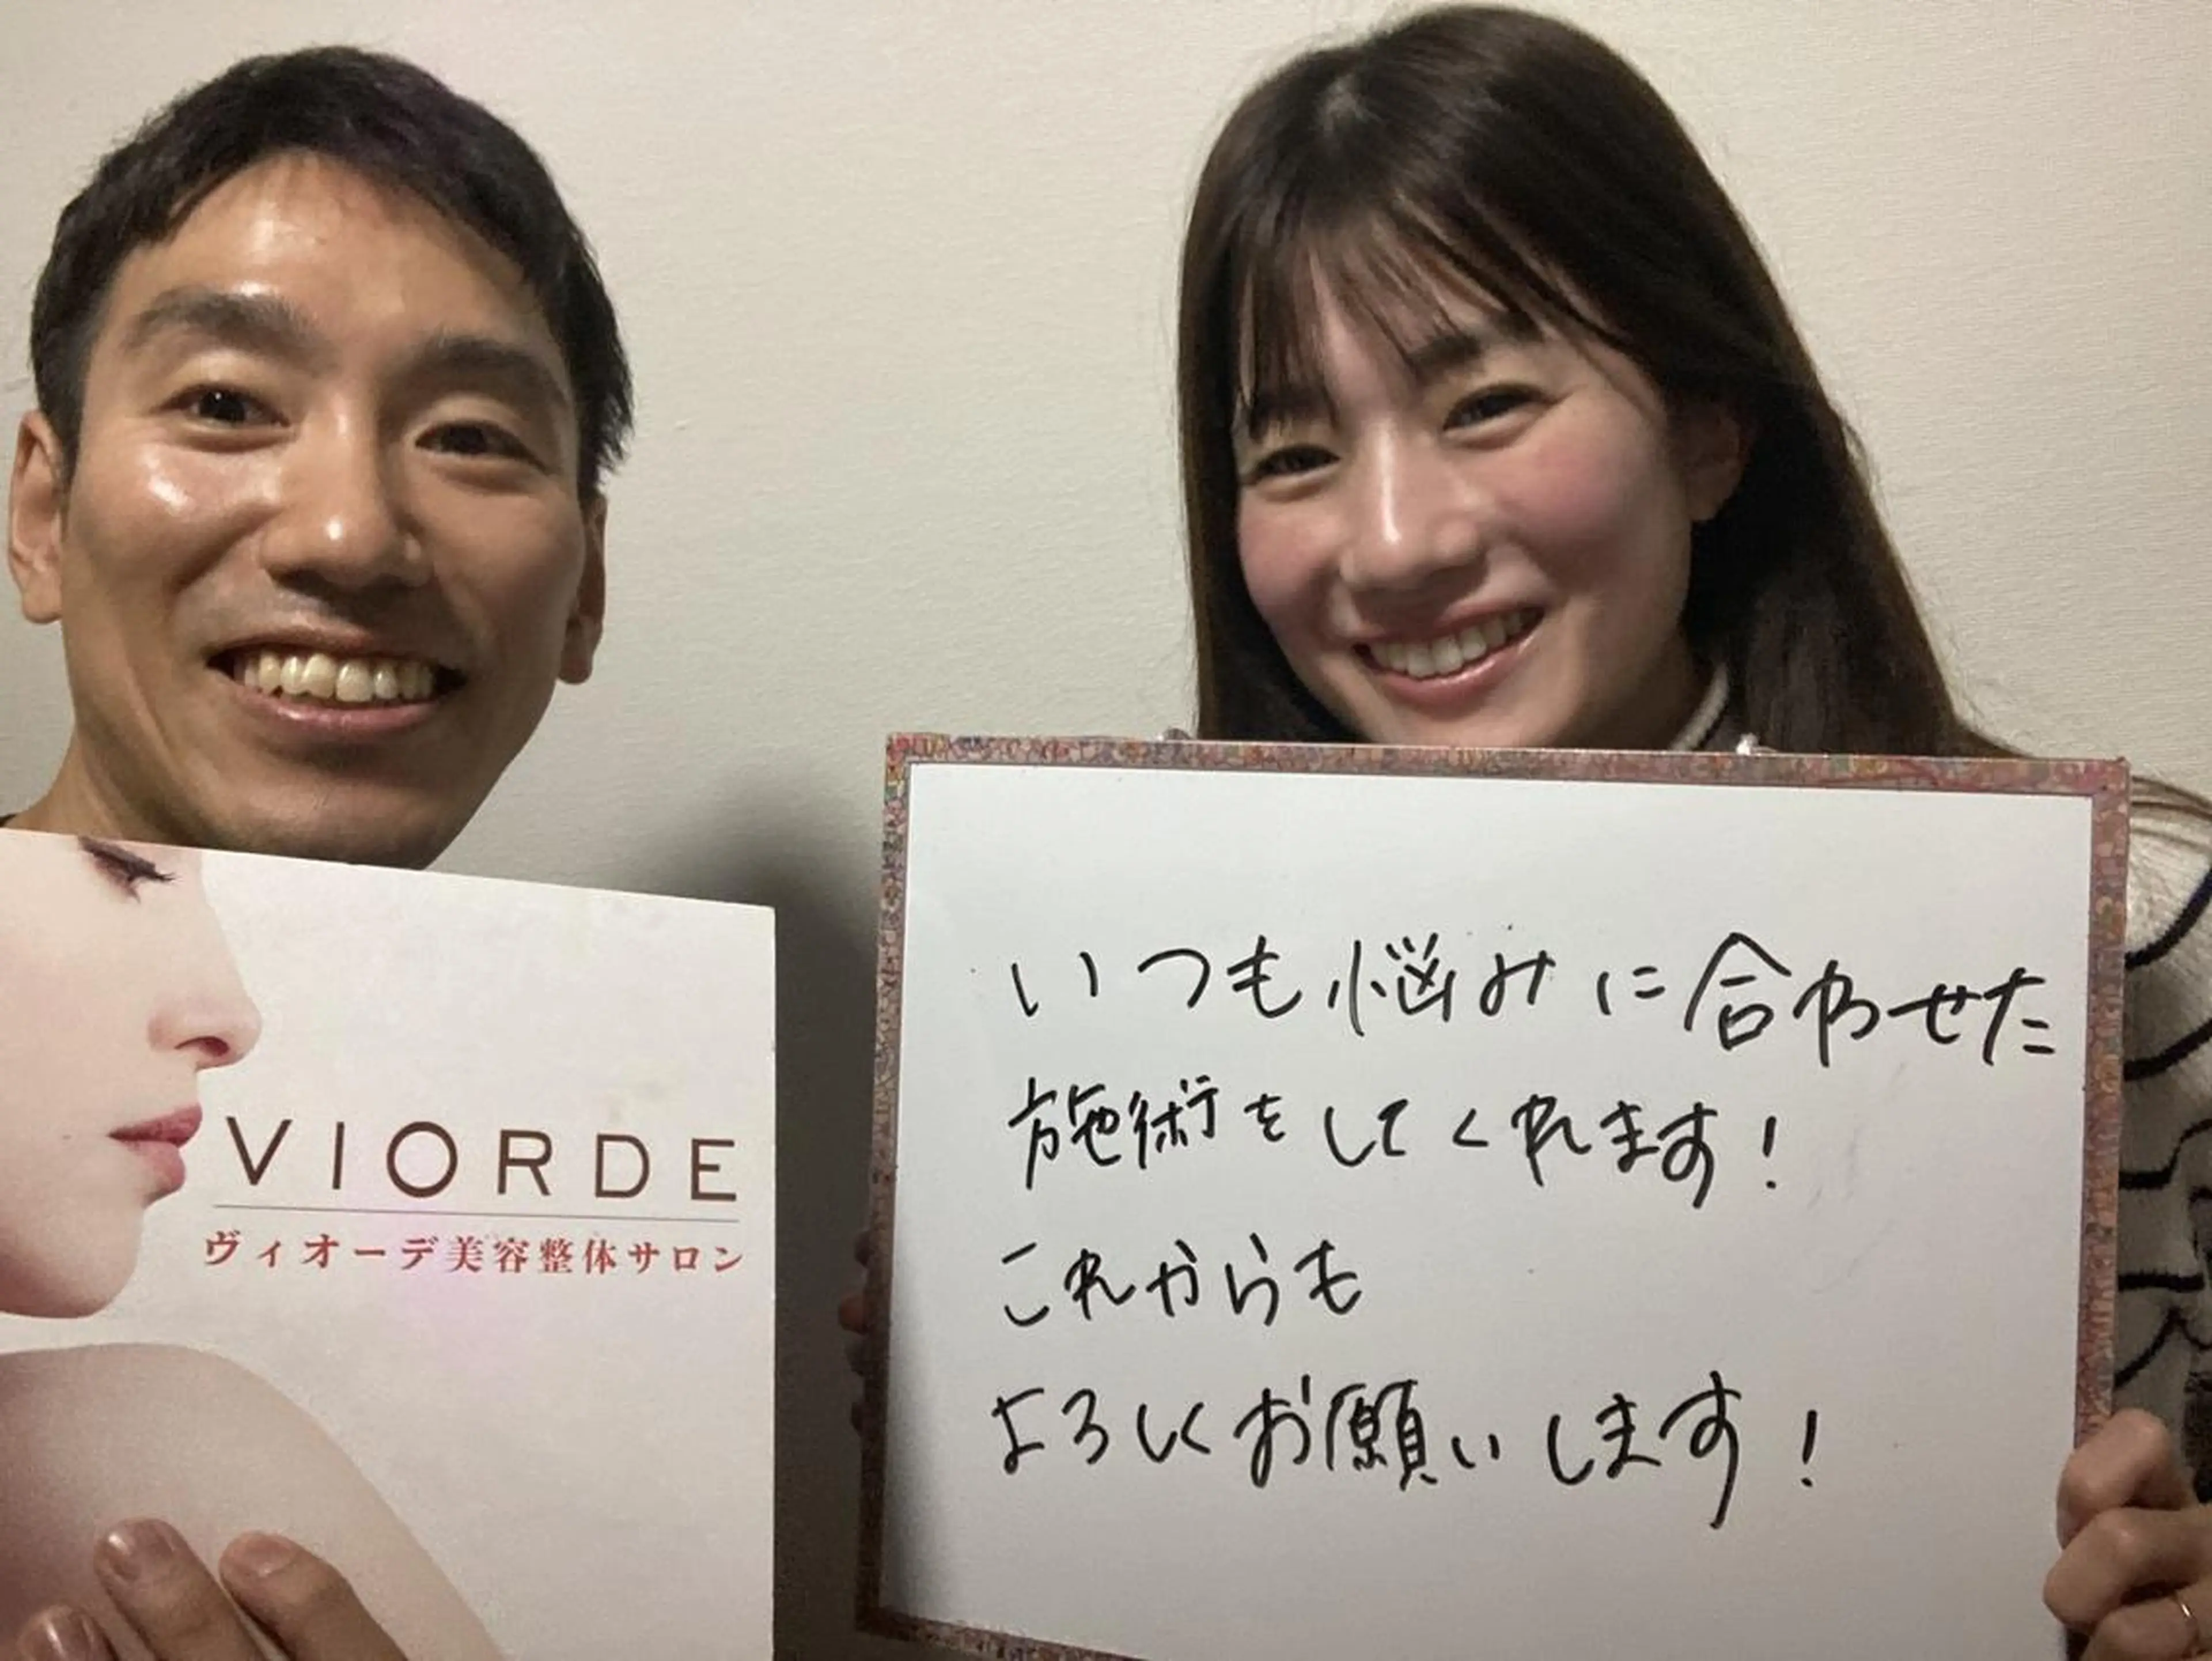 VIORDE
ヴィオーデ美容整体サロン
いつも悩みに合わせた
施術をしてくれます！
これからも
よろしくお願いします！